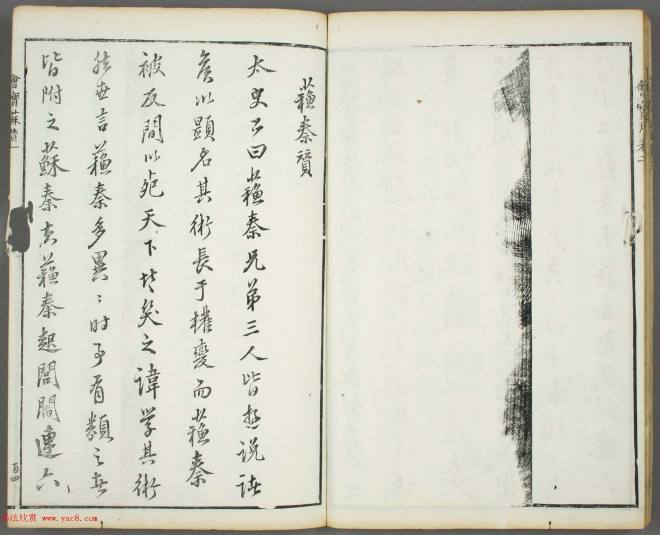 蘓秦贊
太史公曰蘓秦兄弟三人皆遊說諸
矦以顯名其術長于權變而蘓秦
被反間以死天下共笑之諱學其術
然世言蘓秦多異〻時事有類之者
皆附之蘇秦夫蘓秦起閭閻連六
百四
书法欣赏 www.yac8.com